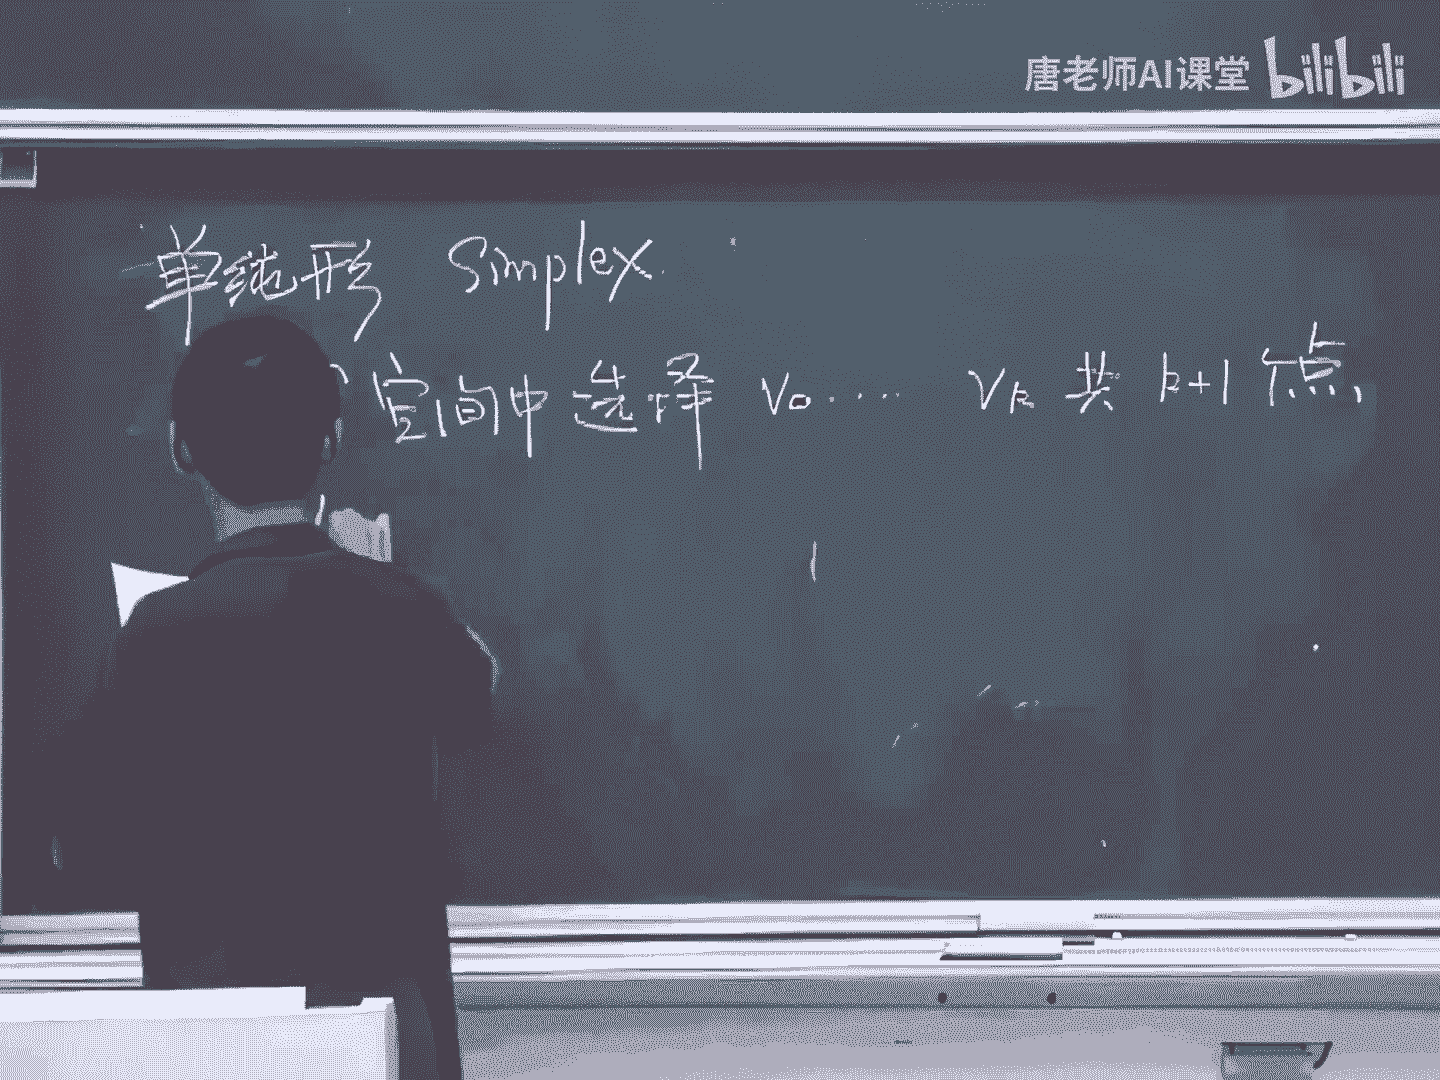 唐老师AI课堂 bilibili
单纯形 Simplex.
空间中选择 V₀ ····  Vₖ 共 k+1 个点,